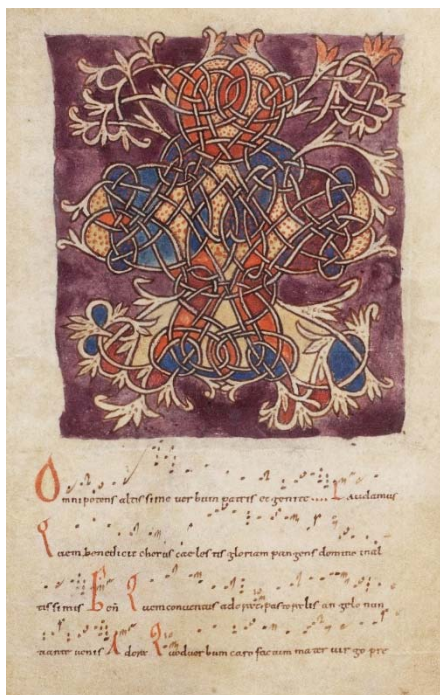 Omnipotens altissime verbum patris et genite.... Laudamus
Quem benedicit chorus caelestis gloriam pangens domino in al
tissimis Ben Quem convenans adoreci pastoralis angelo nun
ciante venis Ador Quod verbum caro factum mater virgo pre